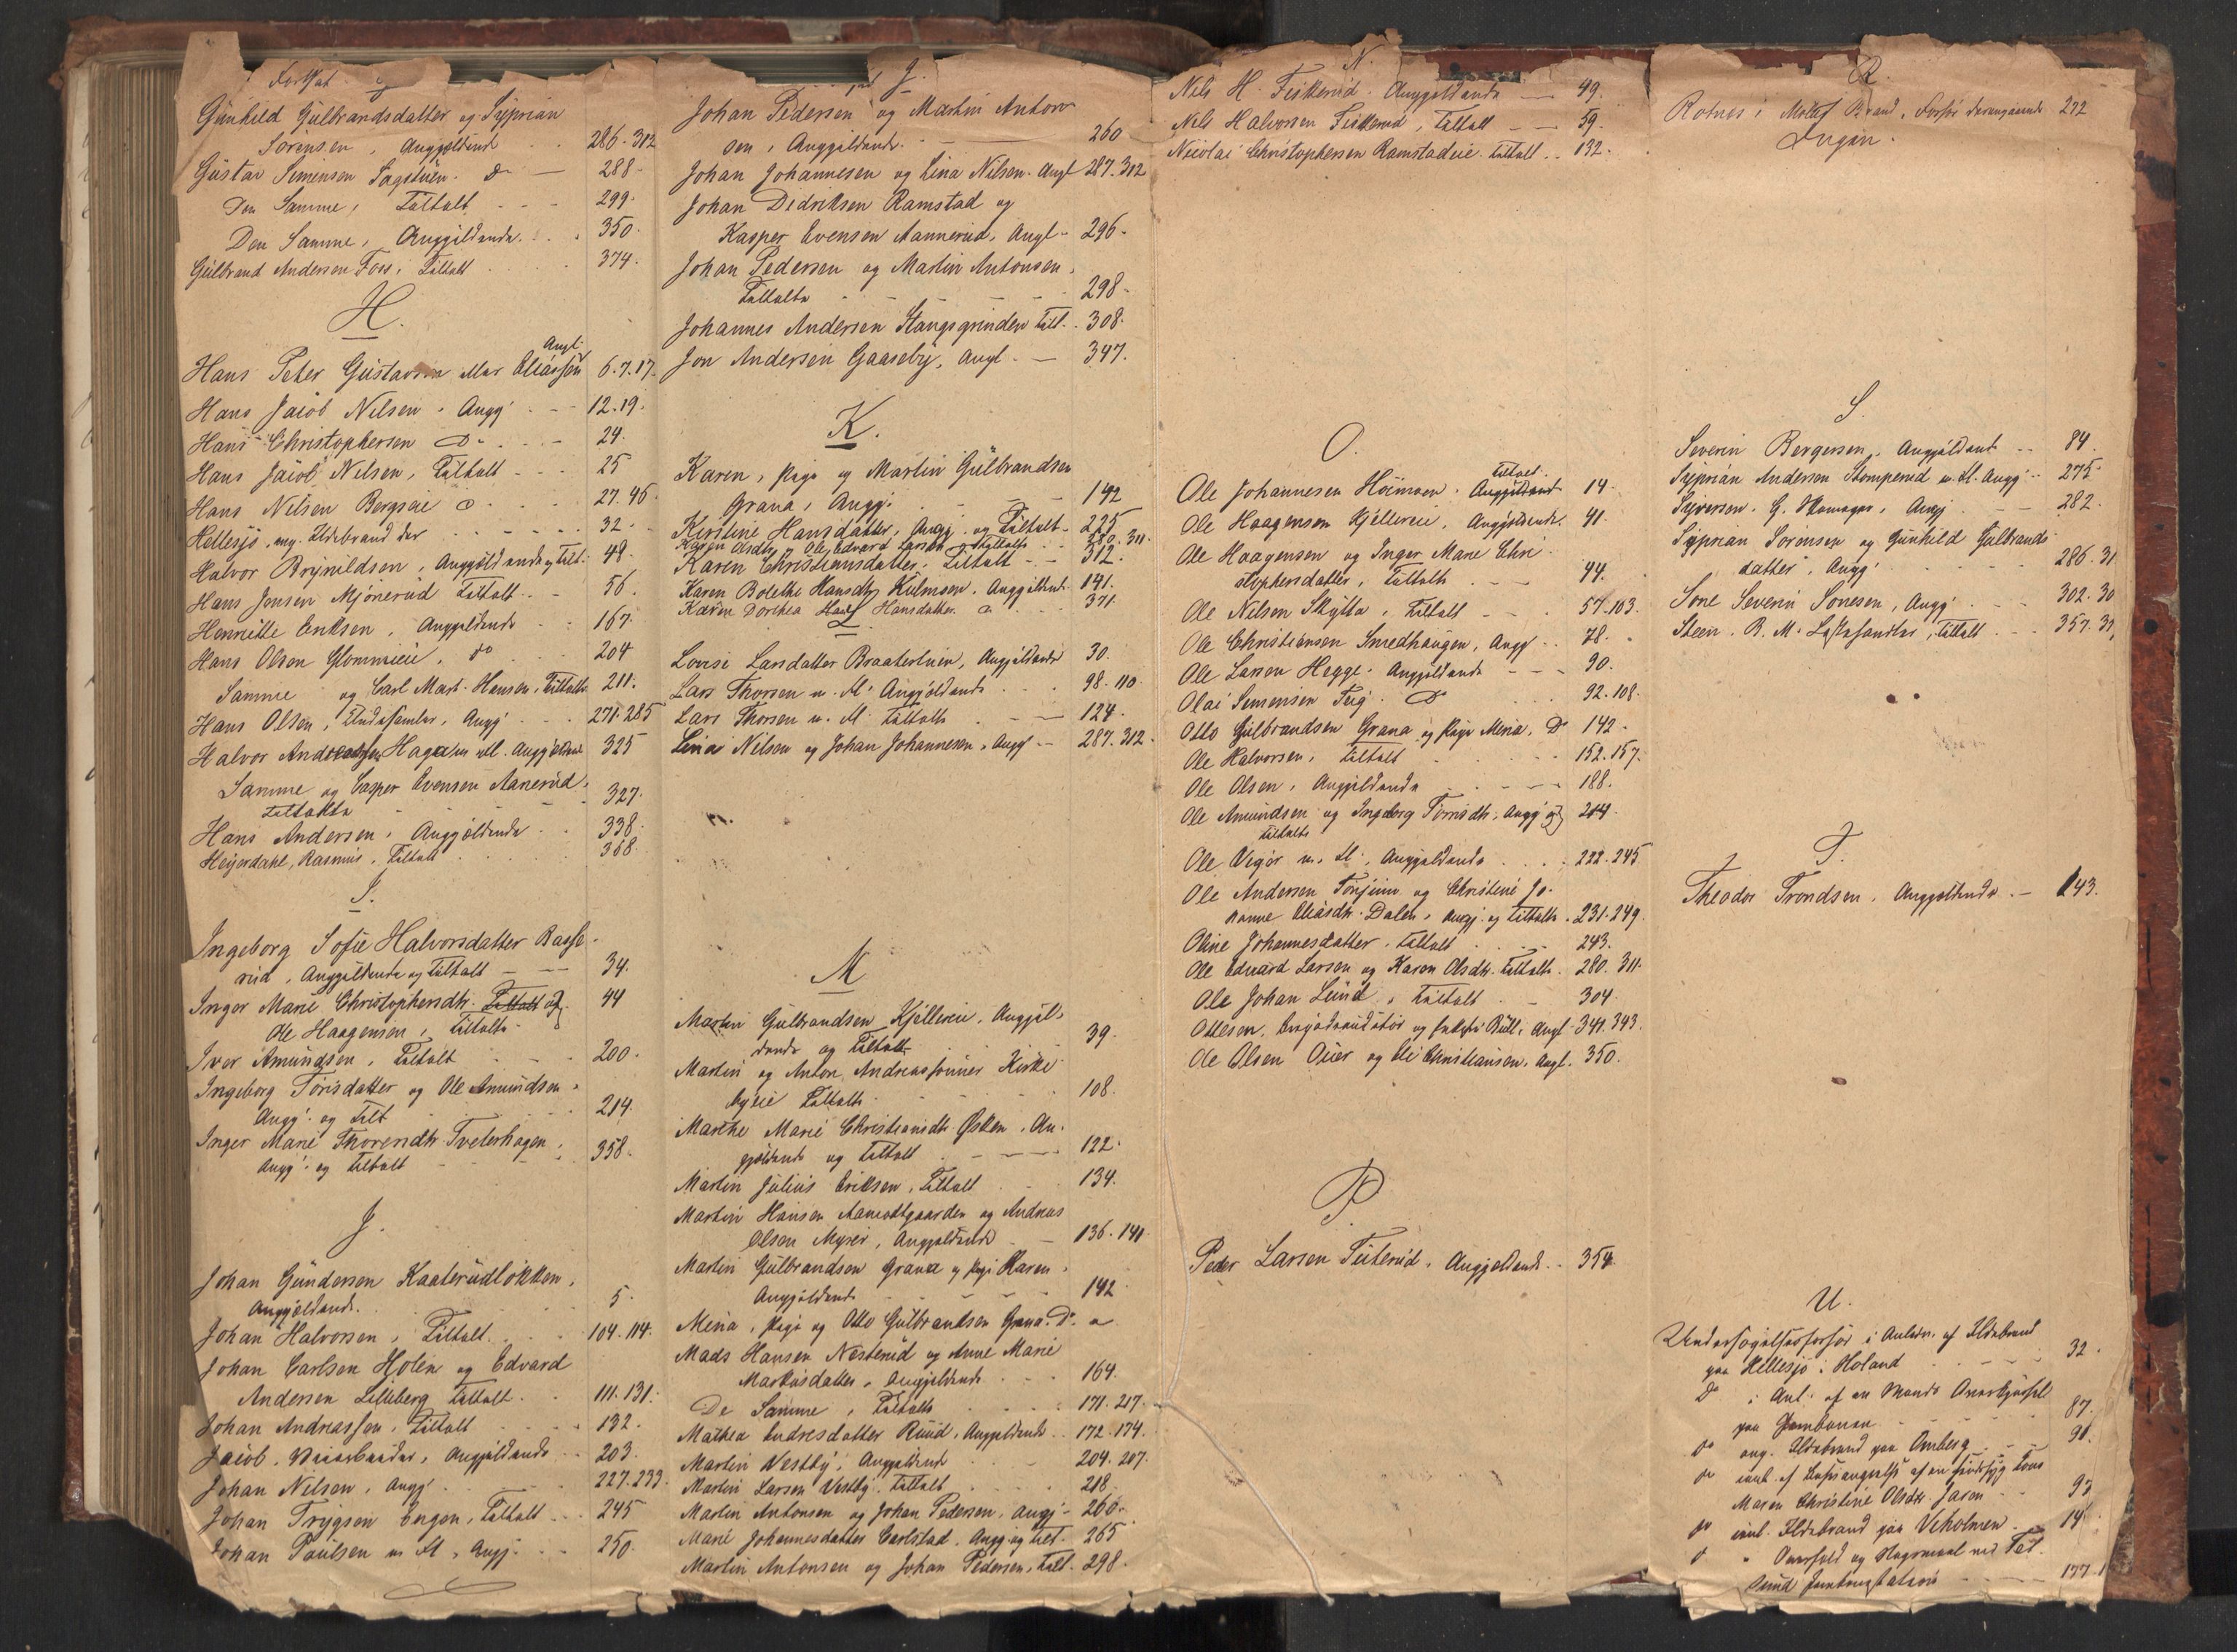 Fortsat
Gunhild Gulbrandsdatter og Syprian
Sörensen, Anggjeldende 286. 312
Gustav Simensen Sagstuen. Do 288.
Den Samme, Tiltalt 299.
Den Samme, Anggjældende. 350.
Gulbrand Andersen Foss, Tiltalt 374.
H.
Angl.
Hans Peter Gustavsen eller Eliassen 6.7.17.
Hans Jacob Nilsen. Angj. 12.19.
Hans Christophersen Do 24.
Hans Jacob Nilsen, Tiltalt 25
Hans Nilsen Bergseie 27.46.
Hellesjö, ang. Ildebrand der 32.
Halvor Brynildsen, Anggjeldende og tilt. 48.
Hans Jensen Mjönerud Tiltalt 56.
Henriette Eriksen, Anggjeldende 167.
Hans Olsen Glommieie, do 204
Samme og Carl Mart. Hansen, Tiltalte 211.
Hans Olsen, Angj. 271.285
Halvor Andreassen Hagaen m. fl. Anggjeldende 325
Samme og Casper Evensen Aanerud,
tiltalte 327.
Hans Andersen, Anggjeldende 338.
Heyerdahl, Rasmus, Tiltalt 368.
I.
Ingeborg Sofie Halvorsdatter Rasse-
rud, Anggjeldende og tiltalt 34.
Inger Marie Christophersdtr. Tiltalt og 44
Ole Haagensen, tiltalte.
Iver Amundsen, Tiltalt 200.
Ingeborg Torisdatter og Ole Amundsen,
Angj. og tilt 214.
Inger Marie Thorensdtr Tveterhagen,
Angj. og tiltalt 358.
J.
Johan Gundersen Kaaterudlökken,
Anggjeldende. 5.
Johan Halvorsen, Tiltalt. 104. 114.
Johan Carlsen Holen og Edvard
Andersen Lilleberg tiltalt 111.131.
Johan Andreassen, Tiltalt 132.
Jacob, Anggjeldende 203.
Johan Nilsen, Angj. 227.233.
Johan Trygsen Engen, Tiltalt 245
Johan Paulsen m. fl, Angj. 250.
J.
Johan Pedersen og Martin Anton
sen, Anggjeldende. 260
Johan Johannesen og Lina Nilsen. Angl 287.312
Johan Didriksen Ramstad og
Kasper Evensen Aannerud, Angl. 296.
Johan Pedersen og Martin Antonsen,
Tiltalte 298.
Johannes Andersen Stangsgrinden tilt. 308.
Jon Andersen Gaaseby, Angl. 347.
K.
Karen, Pige og Martin Gulbrandsen
Grana, Angj. 142
Kirstine Hansdatter, Angj. og Tiltalt 225
Karen Olsdtr. og Ole Edvard Larsen, Tiltalte 280.311.
Karen Christiansdatter, Tiltalt 312.
Karen Bolethe Hansdtr Kulmoen, Anggjeldende 141.
Karen Dorthea Hansdatter. 371.
L
Lovise Larsdatter Braatertuen, Anggjeldende 30.
Lars Thorsen m. fl. Anggjeldende 98. 110
Lars Thorsen m. fl. Tiltalte 124.
Lina Nilsen og Johan Johannesen, Angj. 287.312.
M
Martin Gulbrandsen Kjellereie, Anggjel-
dende og Tiltalt 39.
Martin og Anton Andreassönner Kirke-
byeie Tiltalte 108.
Marthe Marie Christiansdtr. Østken, An-
gjeldende og tiltalt 122.
Martin Julius Eriksen, Tiltalt 134.
Martin Hansen Aamodtgaarden og Andreas
Olsen Myrer, Anggjeldende 136.141
Martin Gulbrandsen Grana og Pige Karen,
Anggjeldende 142
Mina, Pige og Otto Gulbrandsen Grana. Do
Mads Hansen Nesterud og Anne Marie
Markusdatter, Anggjeldende 164.
De Samme, Tiltalte 171.217.
Mathea Andresdatter Ruud, Anggjeldende 172.174.
Martin Vestby, Anggjeldende 204.207.
Martin Larsen Vestby. tiltalt 218.
Martin Antonsen og Johan Pedersen, angj. 260.
Marie Johannesdatter Carlstad, Angj og tilt. 265
Martin Antonsen og Johan Pedersen, tilt. 298.
N.
Nils H. Fiskerud. Anggjeldende 49.
Nils Halvorsen Fiskerud, Tiltalt 59.
Nicolai Christophersen Ramstadeie. tiltalt 132.
O.
tiltalt.
Ole Johannesen Höimoen. Anggjeldende 14.
Ole Haagensen Kjellereie, Anggjeldende. 41.
Ole Haagensen og Inger Marie Chri-
stophersdatter, Tiltalte 44.
Ole Nilsen Skytta, Tiltalt 57.103.
Ole Christiansen Smedhaugen, Angj. 78.
Ole Larsen Hegge. Anggjeldende 90.
Olai Simensen Teig. Do 92.108.
Otto Gulbrandsen Grana og Pige Mina, Do 142.
Ole Halvorsen, tiltalt 152.157.
Ole Olsen, Anggjeldende 188.
Ole Amundsen og Ingeborg Torrisdtr. Angj og 214.
tiltalte
Ole Vegar m. fl., Anggjeldende 222.245
Ole Andersen Torjuun og Christine Jo-
hanne Eliasdtr. Dalen, angj. og tiltalte 231.249.
Oline Johannesdatter, tiltalt 243.
Ole Edvard Larsen og Karen Olsdtr. tiltalte. 280.311.
Ole Johan Lund, tiltalt 304.
Ottesen, og Bull, Angl. 341.343.
Ole Olsen Ouer og Eli Christiansen, Angl. 350.
P
Peder Larsen Tuterud, Anggjeldende 354
R.
Rotnes i Brand, Forhör derangaaende 272
Ingen.
S
Severin Bergersen, Anggjeldende 84.
Syprian Andersen Stomperud m. fl. Angj. 275.
Syversen, G. Angj. 282.
Syprian Sörensen og Gunhild Gulbrands-
datter, Angj. 286.31
Sone Severin Sonesen, Angj. 302.30
Steen. B. M. tiltalt 357.3
T.
Theodor Trondsen, Anggjeldende 143.
U.
Undersögelsesforhör i Anledn. af Ildebrand
paa Hellesjö i Höland 32.
Do i Anl. af en Mands Overkjörsel
paa Jernbanen 87.
do ang. Ildebrand paa Omberg 91.
do
Maren Christine Olsdtr. 95
do Ildebrand paa Veholmen 14
Overfald og ved Fet-
sund Jernbanestation 177.1